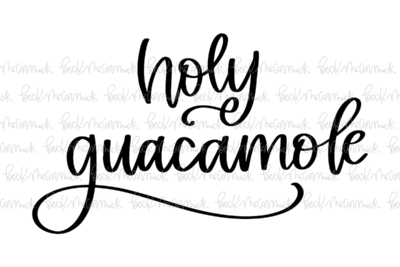 holy
guacamole